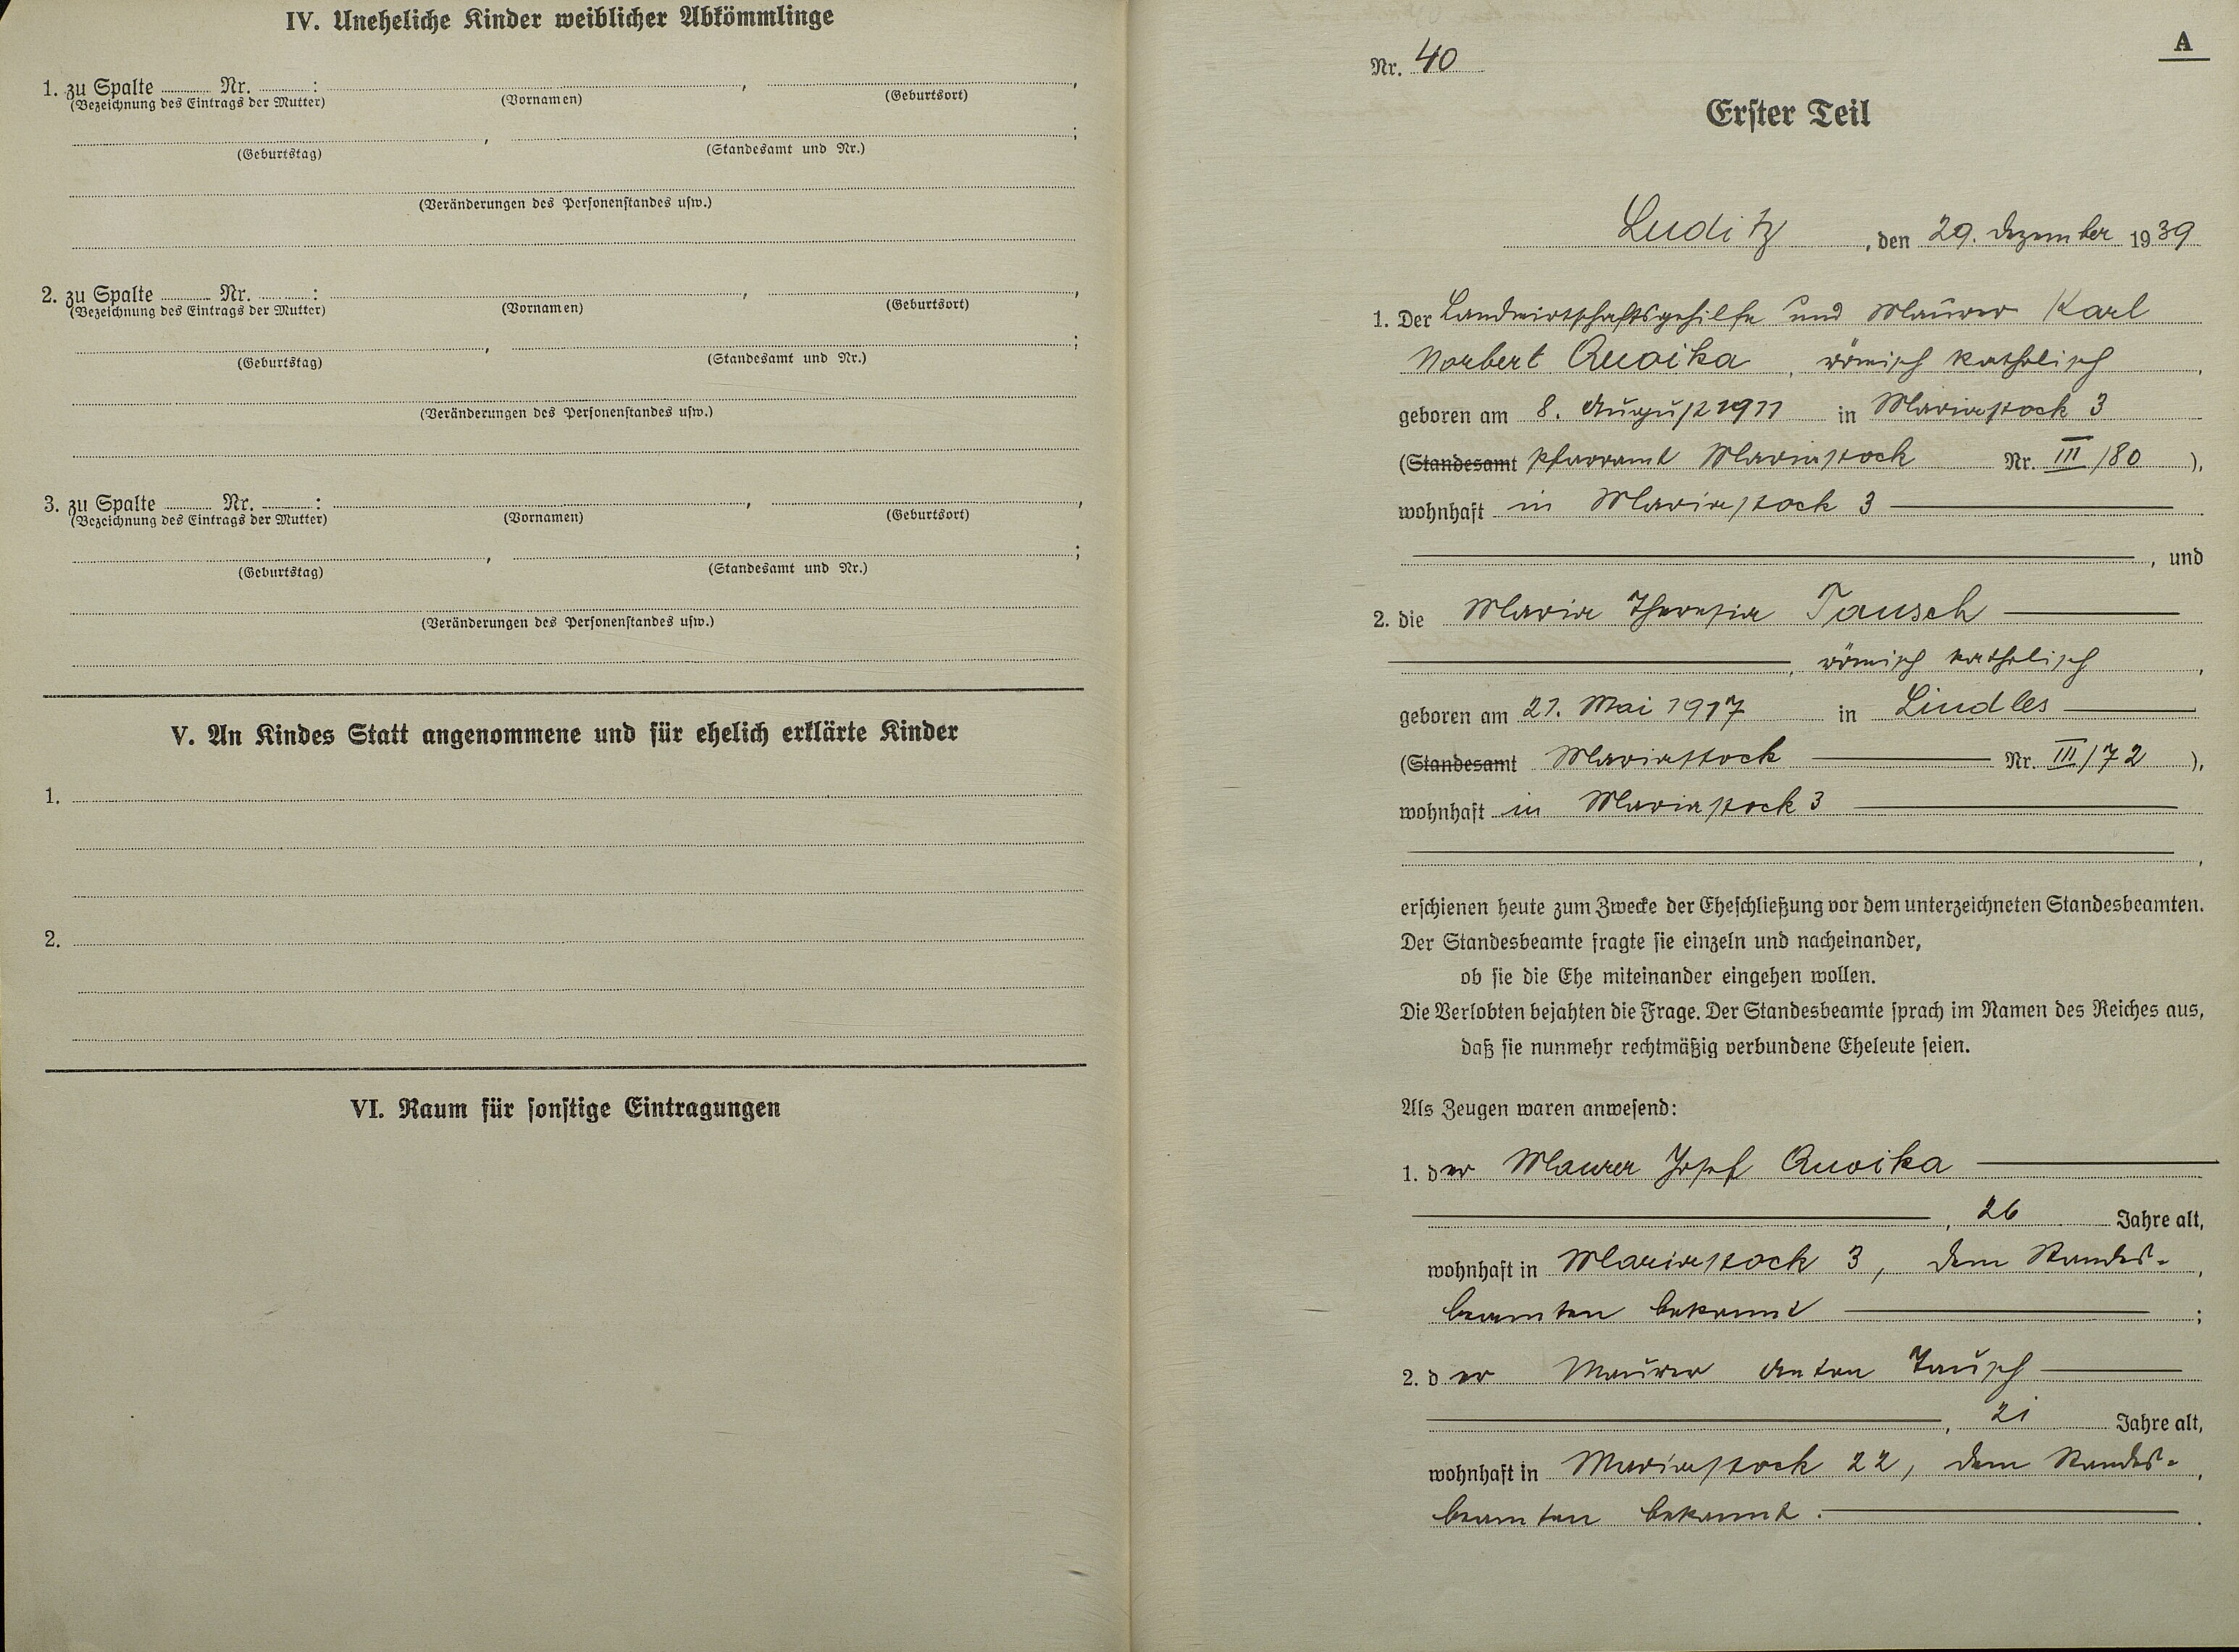 IV. Uneheliche Kinder weiblicher Abkömmlinge
1. zu Spalte Nr. : , ,
(Bezeichnung des Eintrags der Mutter) (Vornamen) (Geburtsort)
, ;
(Geburtstag) (Standesamt und Nr.)
(Veränderungen des Personenstandes usw.)
2. zu Spalte Nr. : , ,
(Bezeichnung des Eintrags der Mutter) (Vornamen) (Geburtsort)
, ;
(Geburtstag) (Standesamt und Nr.)
(Veränderungen des Personenstandes usw.)
3. zu Spalte Nr. : , ,
(Bezeichnung des Eintrags der Mutter) (Vornamen) (Geburtsort)
, ;
(Geburtstag) (Standesamt und Nr.)
(Veränderungen des Personenstandes usw.)
V. An Kindes Statt angenommene und für ehelich erklärte Kinder
1.
2.
VI. Raum für sonstige Eintragungen
A
Nr. 40
Erster Teil
Luditz, den 29. Dezember 1939
1. Der Landwirtschaftsgehilfe und Maurer Karl
Norbert Quoika, römisch katholisch,
geboren am 8. August 1911 in Mariastock 3
(Standesamt Pfarramt Mariastock Nr. III/80),
wohnhaft in Mariastock 3
, und
2. die Maria Theresia Tausch
, römisch katholisch,
geboren am 21. Mai 1917 in Lindles
(Standesamt Mariastock Nr. III/72),
wohnhaft in Mariastock 3
,
erschienen heute zum Zwecke der Eheschließung vor dem unterzeichneten Standesbeamten.
Der Standesbeamte fragte sie einzeln und nacheinander,
ob sie die Ehe miteinander eingehen wollen.
Die Verlobten bejahten die Frage. Der Standesbeamte sprach im Namen des Reiches aus,
daß sie nunmehr rechtmäßig verbundene Eheleute seien.
Als Zeugen waren anwesend:
1. der Maurer Josef Quoika
, 26 Jahre alt,
wohnhaft in Mariastock 3, dem Standes-,
beamten bekannt ;
2. der Maurer Anton Tausch
, 21 Jahre alt,
wohnhaft in Mariastock 22, dem Standes-,
beamten bekannt.